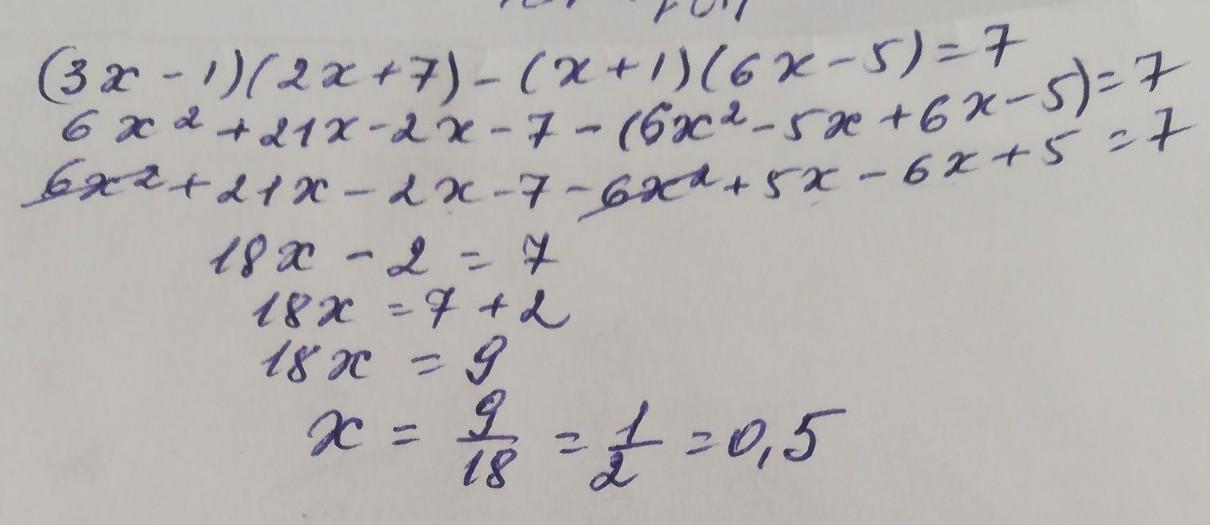 (3x - 1)(2x + 7) - (x + 1)(6x - 5) = 7
6x² + 21x - 2x - 7 - (6x² - 5x + 6x - 5) = 7
6x² + 21x - 2x - 7 - 6x² + 5x - 6x + 5 = 7
18x - 2 = 7
18x = 7 + 2
18x = 9
x = 9/18 = 1/2 = 0,5